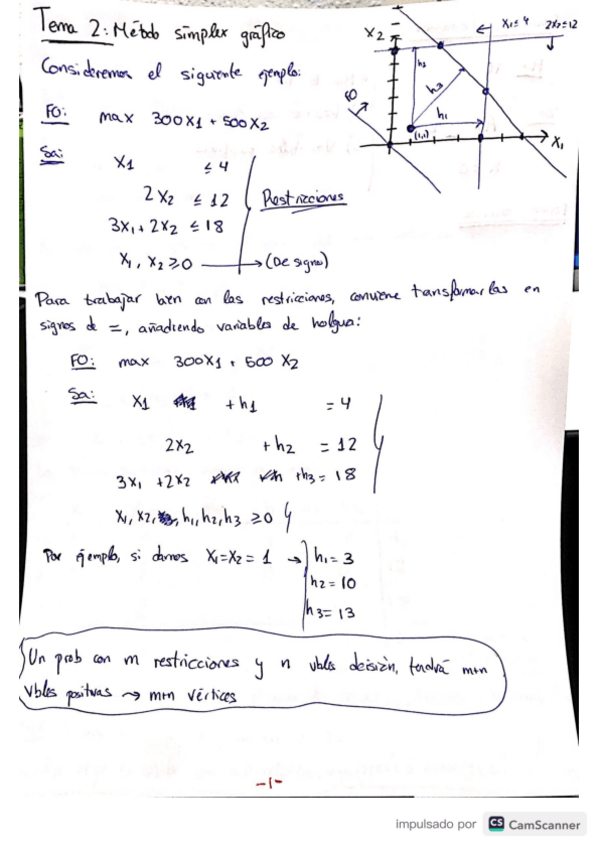 Tema 2: Método simplex gráfico
Consideremos el siguiente ejemplo:
FO: max 300x1 + 500x2
Sa:
x1 ≤ 4
2x2 ≤ 12
3x1 + 2x2 ≤ 18
Restricciones
x1, x2 ≥ 0 → (De signo)
x2
x1 ≤ 4
2x2 = 12
h2
h3
h1
(1,1)
x1
FO
Para trabajar bien con las restricciones, conviene transformarlas en
signos de =, añadiendo variables de holgua:
FO: max 300x1 + 500x2
Sa:
x1 + h1 = 4
2x2 + h2 = 12
3x1 + 2x2 + h3 = 18
x1, x2, h1, h2, h3 ≥ 0
Por ejemplo, si damos x1 = x2 = 1 → h1 = 3
h2 = 10
h3 = 13
Un prob con m restricciones y n vbles decisión, tendrá m+n
vbles positivas → m+n vértices
-1-
impulsado por CS CamScanner